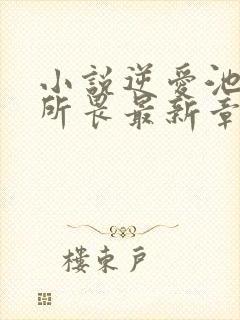 小説逆愛池
所畏最新章
樓東戶